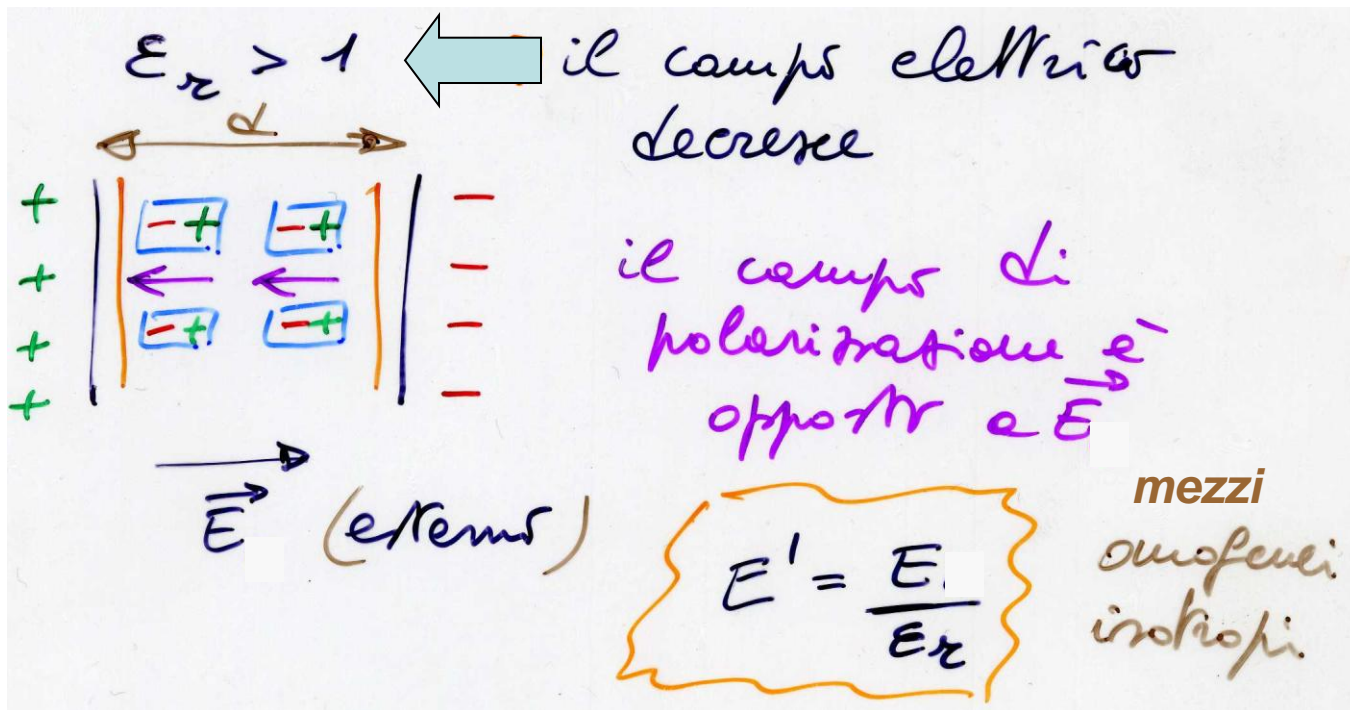 εr > 1
il campo elettrico
decresce
d
+ -
- + - +
+ -
il campo di
+ - + - + -
polarizzazione è
+ -
opposto a E⃗
E⃗ (esterno)
E' = E / εr
mezzi
omogenei
isotropi.